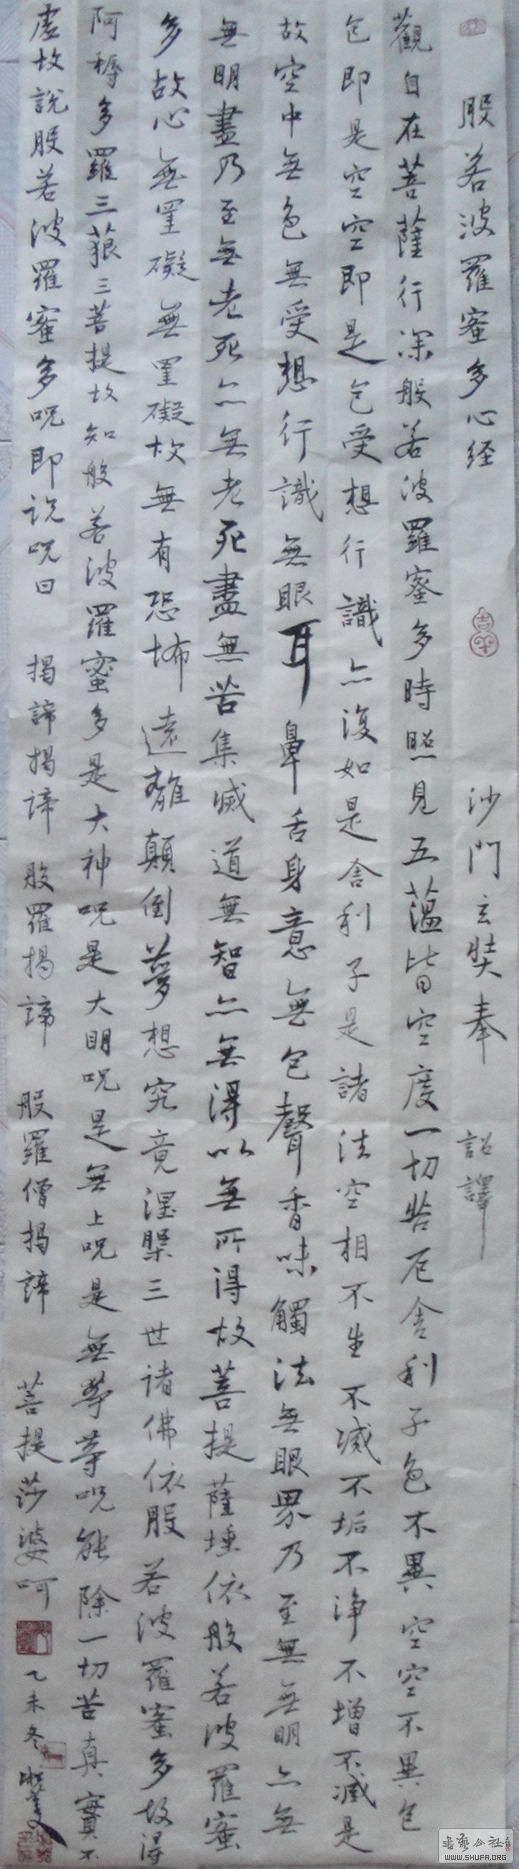 般若波羅蜜多心经 沙門玄奘奉 詔譯
觀自在菩薩行深般若波羅蜜多時照見五蘊皆空度一切苦厄舍利子色不異空空不異色
色即是空空即是色受想行識亦復如是舍利子是諸法空相不生不滅不垢不净不增不减是
故空中無色無受想行識無眼耳鼻舌身意無色聲香味觸法無眼界乃至無無明亦無
無明盡乃至無老死亦無老死盡無苦集滅道無智亦無得以無所得故菩提薩埵依般若波羅蜜
多故心無罣礙無罣礙故無有恐怖遠離顛倒夢想究竟涅槃三世諸佛依般若波羅蜜多故得
阿耨多羅三藐三菩提故知般若波羅蜜多是大神呪是大明呪是無上呪是無等等呪能除一切苦真實不
虛故說般若波羅蜜多呪即说呪曰 揭諦揭諦 般羅揭諦 般羅僧揭諦 菩提莎婆呵
乙未冬
吉
书艺公社
WWW.SHUFA.ORG